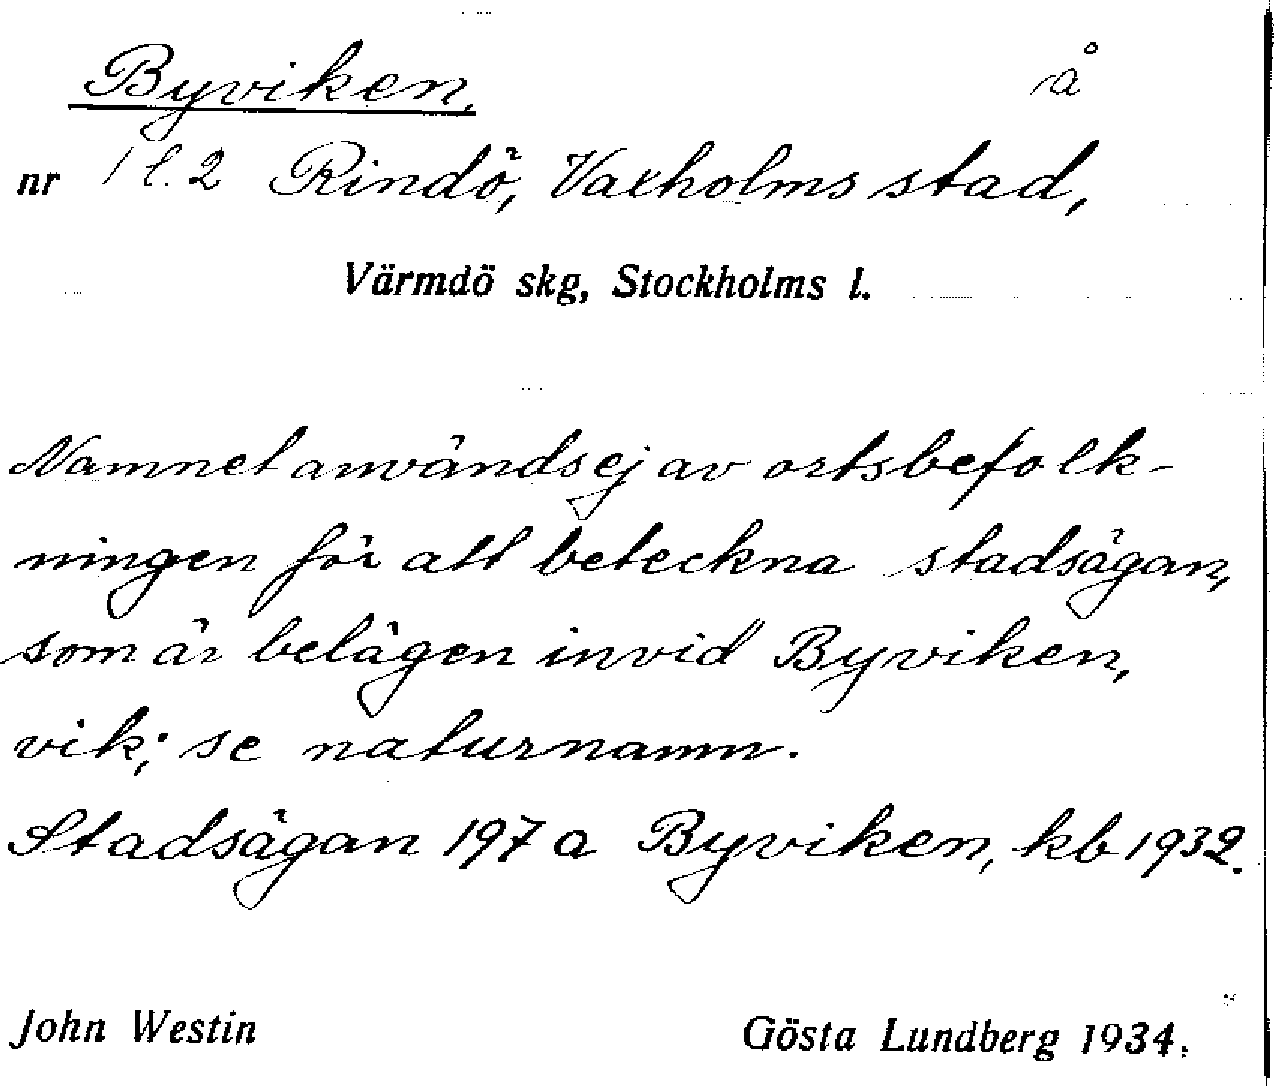 Byviken, å
nr 1 l. 2 Rindö, Vaxholms stad,
Värmdö skg, Stockholms l.
Namnet användsej av ortsbefolk-
ningen för att beteckna stadsägan,
som är belägen invid Byviken,
vik; se naturnamn.
Stadsägan 197 a Byviken, kb 1932.
John Westin Gösta Lundberg 1934.